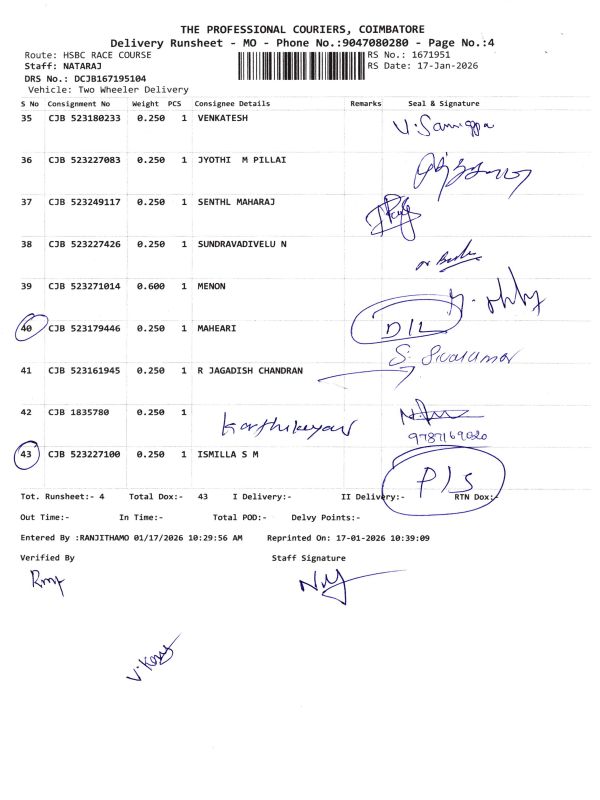 THE PROFESSIONAL COURIERS, COIMBATORE
Delivery Runsheet - MO - Phone No.:9047080280 - Page No.:4
Route: HSBC RACE COURSE RS No.: 1671951
Staff: NATARAJ RS Date: 17-Jan-2026
DRS No.: DCJB167195104
Vehicle: Two Wheeler Delivery
S No Consignment No Weight PCS Consignee Details Remarks Seal & Signature
35 CJB 523180233 0.250 1 VENKATESH
36 CJB 523227083 0.250 1 JYOTHI M PILLAI
37 CJB 523249117 0.250 1 SENTHL MAHARAJ
38 CJB 523227426 0.250 1 SUNDRAVADIVELU N
39 CJB 523271014 0.600 1 MENON
40 CJB 523179446 0.250 1 MAHEARI D/L
41 CJB 523161945 0.250 1 R JAGADISH CHANDRAN S. Sivakumar
42 CJB 1835780 0.250 1 Karthikeyan
43 CJB 523227100 0.250 1 ISMILLA S M P/S
Tot. Runsheet:- 4 Total Dox:- 43 I Delivery:- II Delivery:- RTN Dox:-
Out Time:- In Time:- Total POD:- Delvy Points:-
Entered By :RANJITHAMO 01/17/2026 10:29:56 AM Reprinted On: 17-01-2026 10:39:09
Verified By Staff Signature